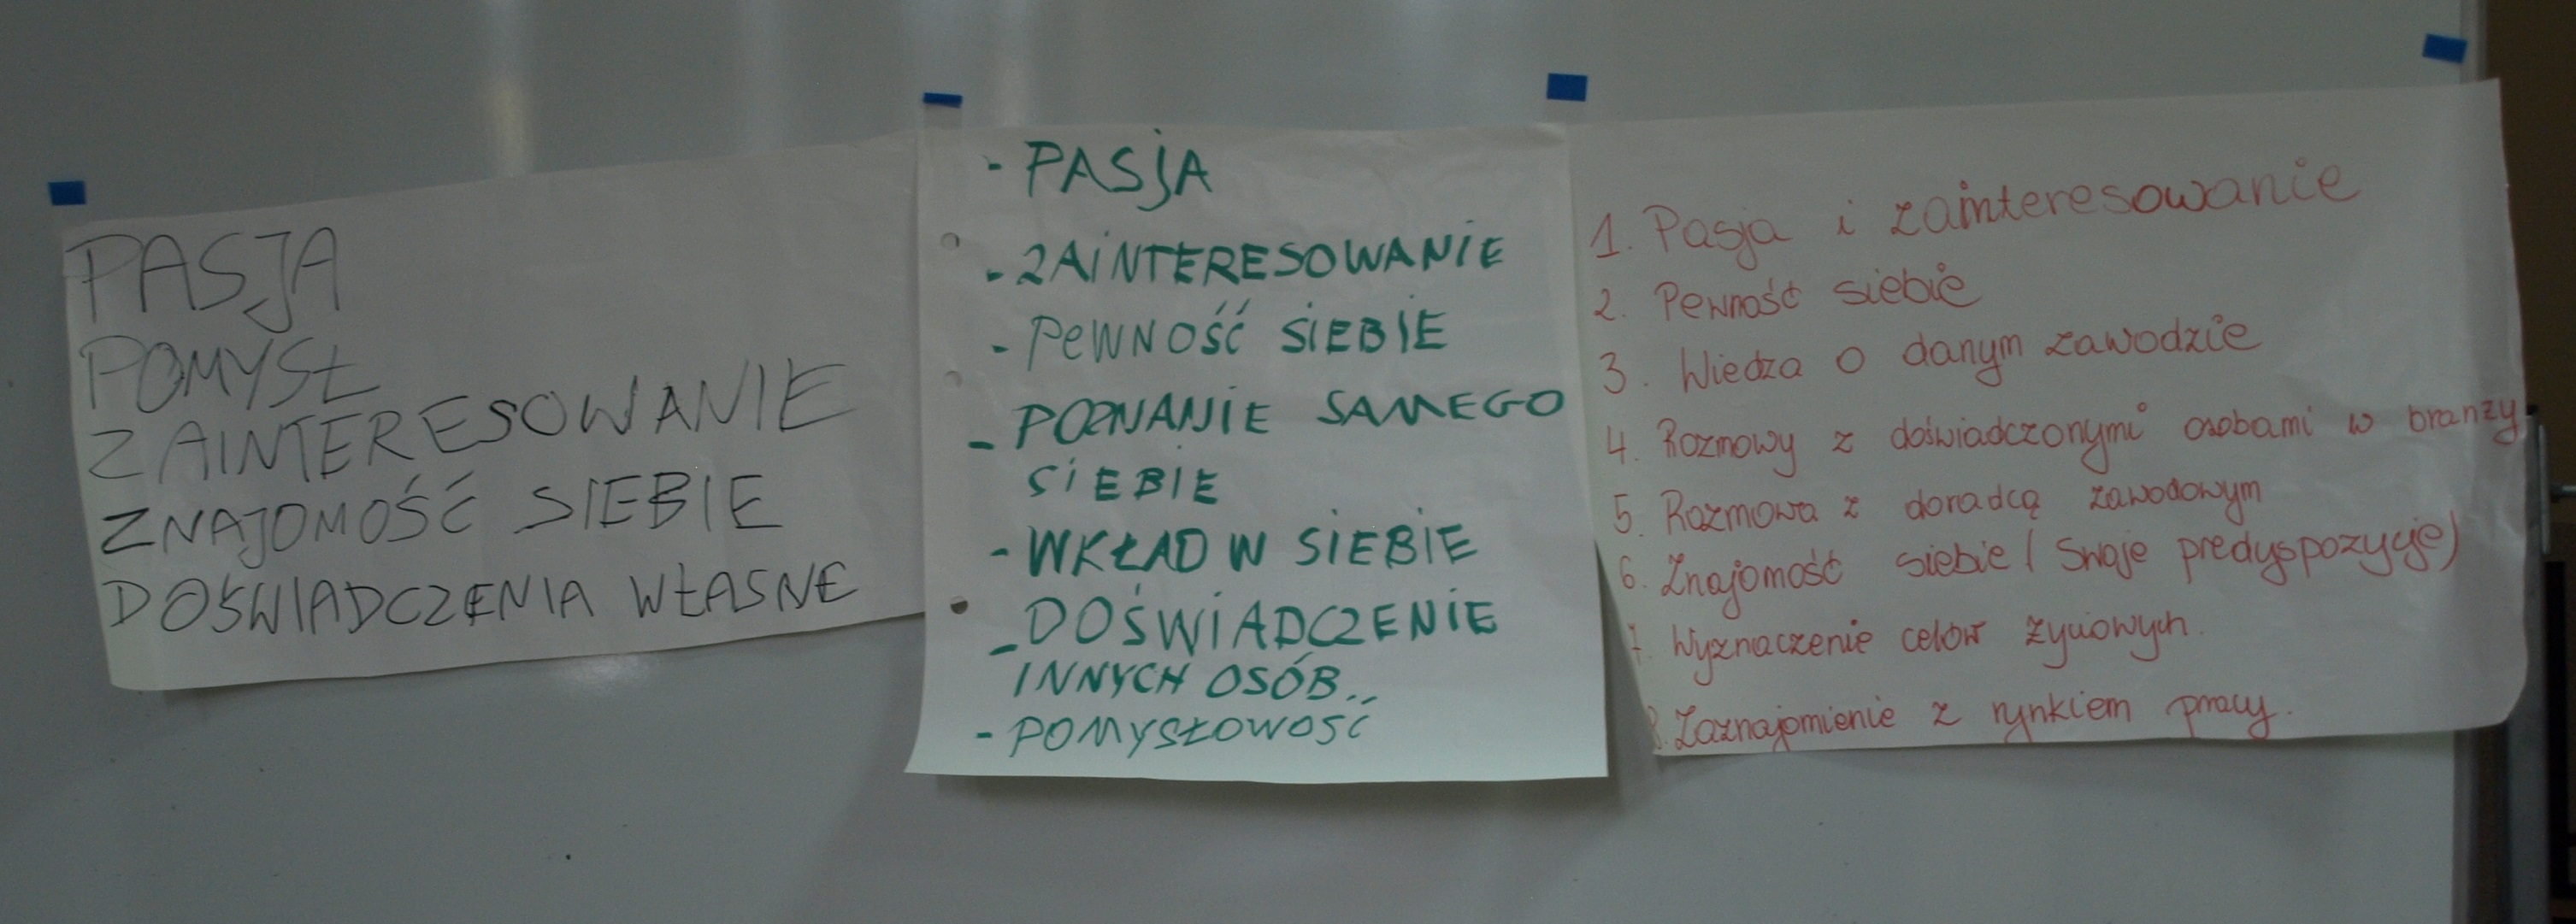 PASJA
POMYSŁ
ZAINTERESOWANIE
ZNAJOMOŚĆ SIEBIE
DOŚWIADCZENIA WŁASNE
- PASJA
- ZAINTERESOWANIE
- PEWNOŚĆ SIEBIE
- POZNANIE SAMEGO
SIEBIE
- WKŁAD W SIEBIE
- DOŚWIADCZENIE
INNYCH OSÓB..
- POMYSŁOWOŚĆ
1. Pasja i zainteresowanie
2. Pewność siebie
3. Wiedza o danym zawodzie
4. Rozmowy z doświadczonymi osobami w branży
5. Rozmowa z doradcą zawodowym
6. Znajomość siebie (Swoje predyspozycje)
7. Wyznaczenie celów życiowych.
8. Zaznajomienie z rynkiem pracy.